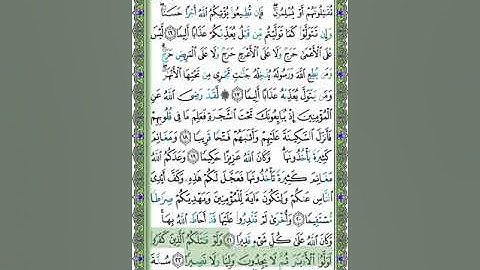 تُقَٰتِلُونَهُمْ أَوْ يُسْلِمُونَ فَإِن تُطِيعُوا يُؤْتِكُمُ اللَّهُ أَجْرًا حَسَنًا
وَإِن تَتَوَلَّوْا كَمَا تَوَلَّيْتُم مِّن قَبْلُ يُعَذِّبْكُمْ عَذَابًا أَلِيمًا ١٦ لَّيْسَ
عَلَى الْأَعْمَىٰ حَرَجٌ وَلَا عَلَى الْأَعْرَجِ حَرَجٌ وَلَا عَلَى الْمَرِيضِ حَرَجٌ
وَمَن يُطِعِ اللَّهَ وَرَسُولَهُ يُدْخِلْهُ جَنَّٰتٍ تَجْرِي مِن تَحْتِهَا الْأَنْهَٰرُ
وَمَن يَتَوَلَّ يُعَذِّبْهُ عَذَابًا أَلِيمًا ١٧ ۞ لَّقَدْ رَضِيَ اللَّهُ عَنِ
الْمُؤْمِنِينَ إِذْ يُبَايِعُونَكَ تَحْتَ الشَّجَرَةِ فَعَلِمَ مَا فِي قُلُوبِهِمْ
فَأَنزَلَ السَّكِينَةَ عَلَيْهِمْ وَأَثَٰبَهُمْ فَتْحًا قَرِيبًا ١٨ وَمَغَانِمَ
كَثِيرَةً يَأْخُذُونَهَا وَكَانَ اللَّهُ عَزِيزًا حَكِيمًا ١٩ وَعَدَكُمُ اللَّهُ
مَغَانِمَ كَثِيرَةً تَأْخُذُونَهَا فَعَجَّلَ لَكُمْ هَٰذِهِ وَكَفَّ أَيْدِيَ
النَّاسِ عَنكُمْ وَلِتَكُونَ ءَايَةً لِّلْمُؤْمِنِينَ وَيَهْدِيَكُمْ صِرَٰطًا
مُّسْتَقِيمًا ٢٠ وَأُخْرَىٰ لَمْ تَقْدِرُوا عَلَيْهَا قَدْ أَحَاطَ اللَّهُ بِهَا
وَكَانَ اللَّهُ عَلَىٰ كُلِّ شَيْءٍ قَدِيرًا ٢١ وَلَوْ قَٰتَلَكُمُ الَّذِينَ كَفَرُوا
لَوَلَّوُا الْأَدْبَٰرَ ثُمَّ لَا يَجِدُونَ وَلِيًّا وَلَا نَصِيرًا ٢٢ سُنَّةَ